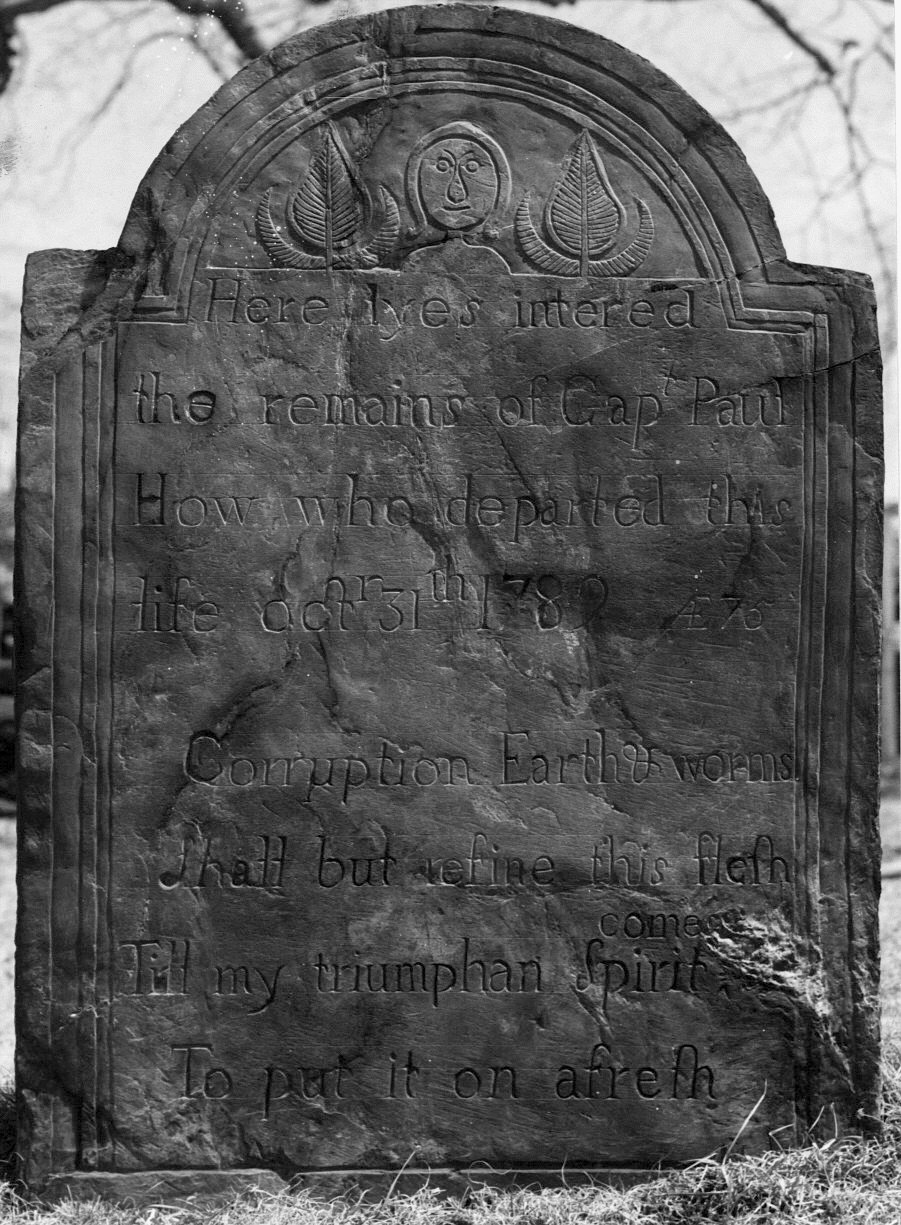 Here lyes intered
the remains of Capᵗ Paul
How who departed this
life octʳ 31ᵗʰ 1789 Æ 75
Corruption Earth & worms
ſhall but refine this fleſh
Till my triumphan ſpirit comes
To put it on afreſh